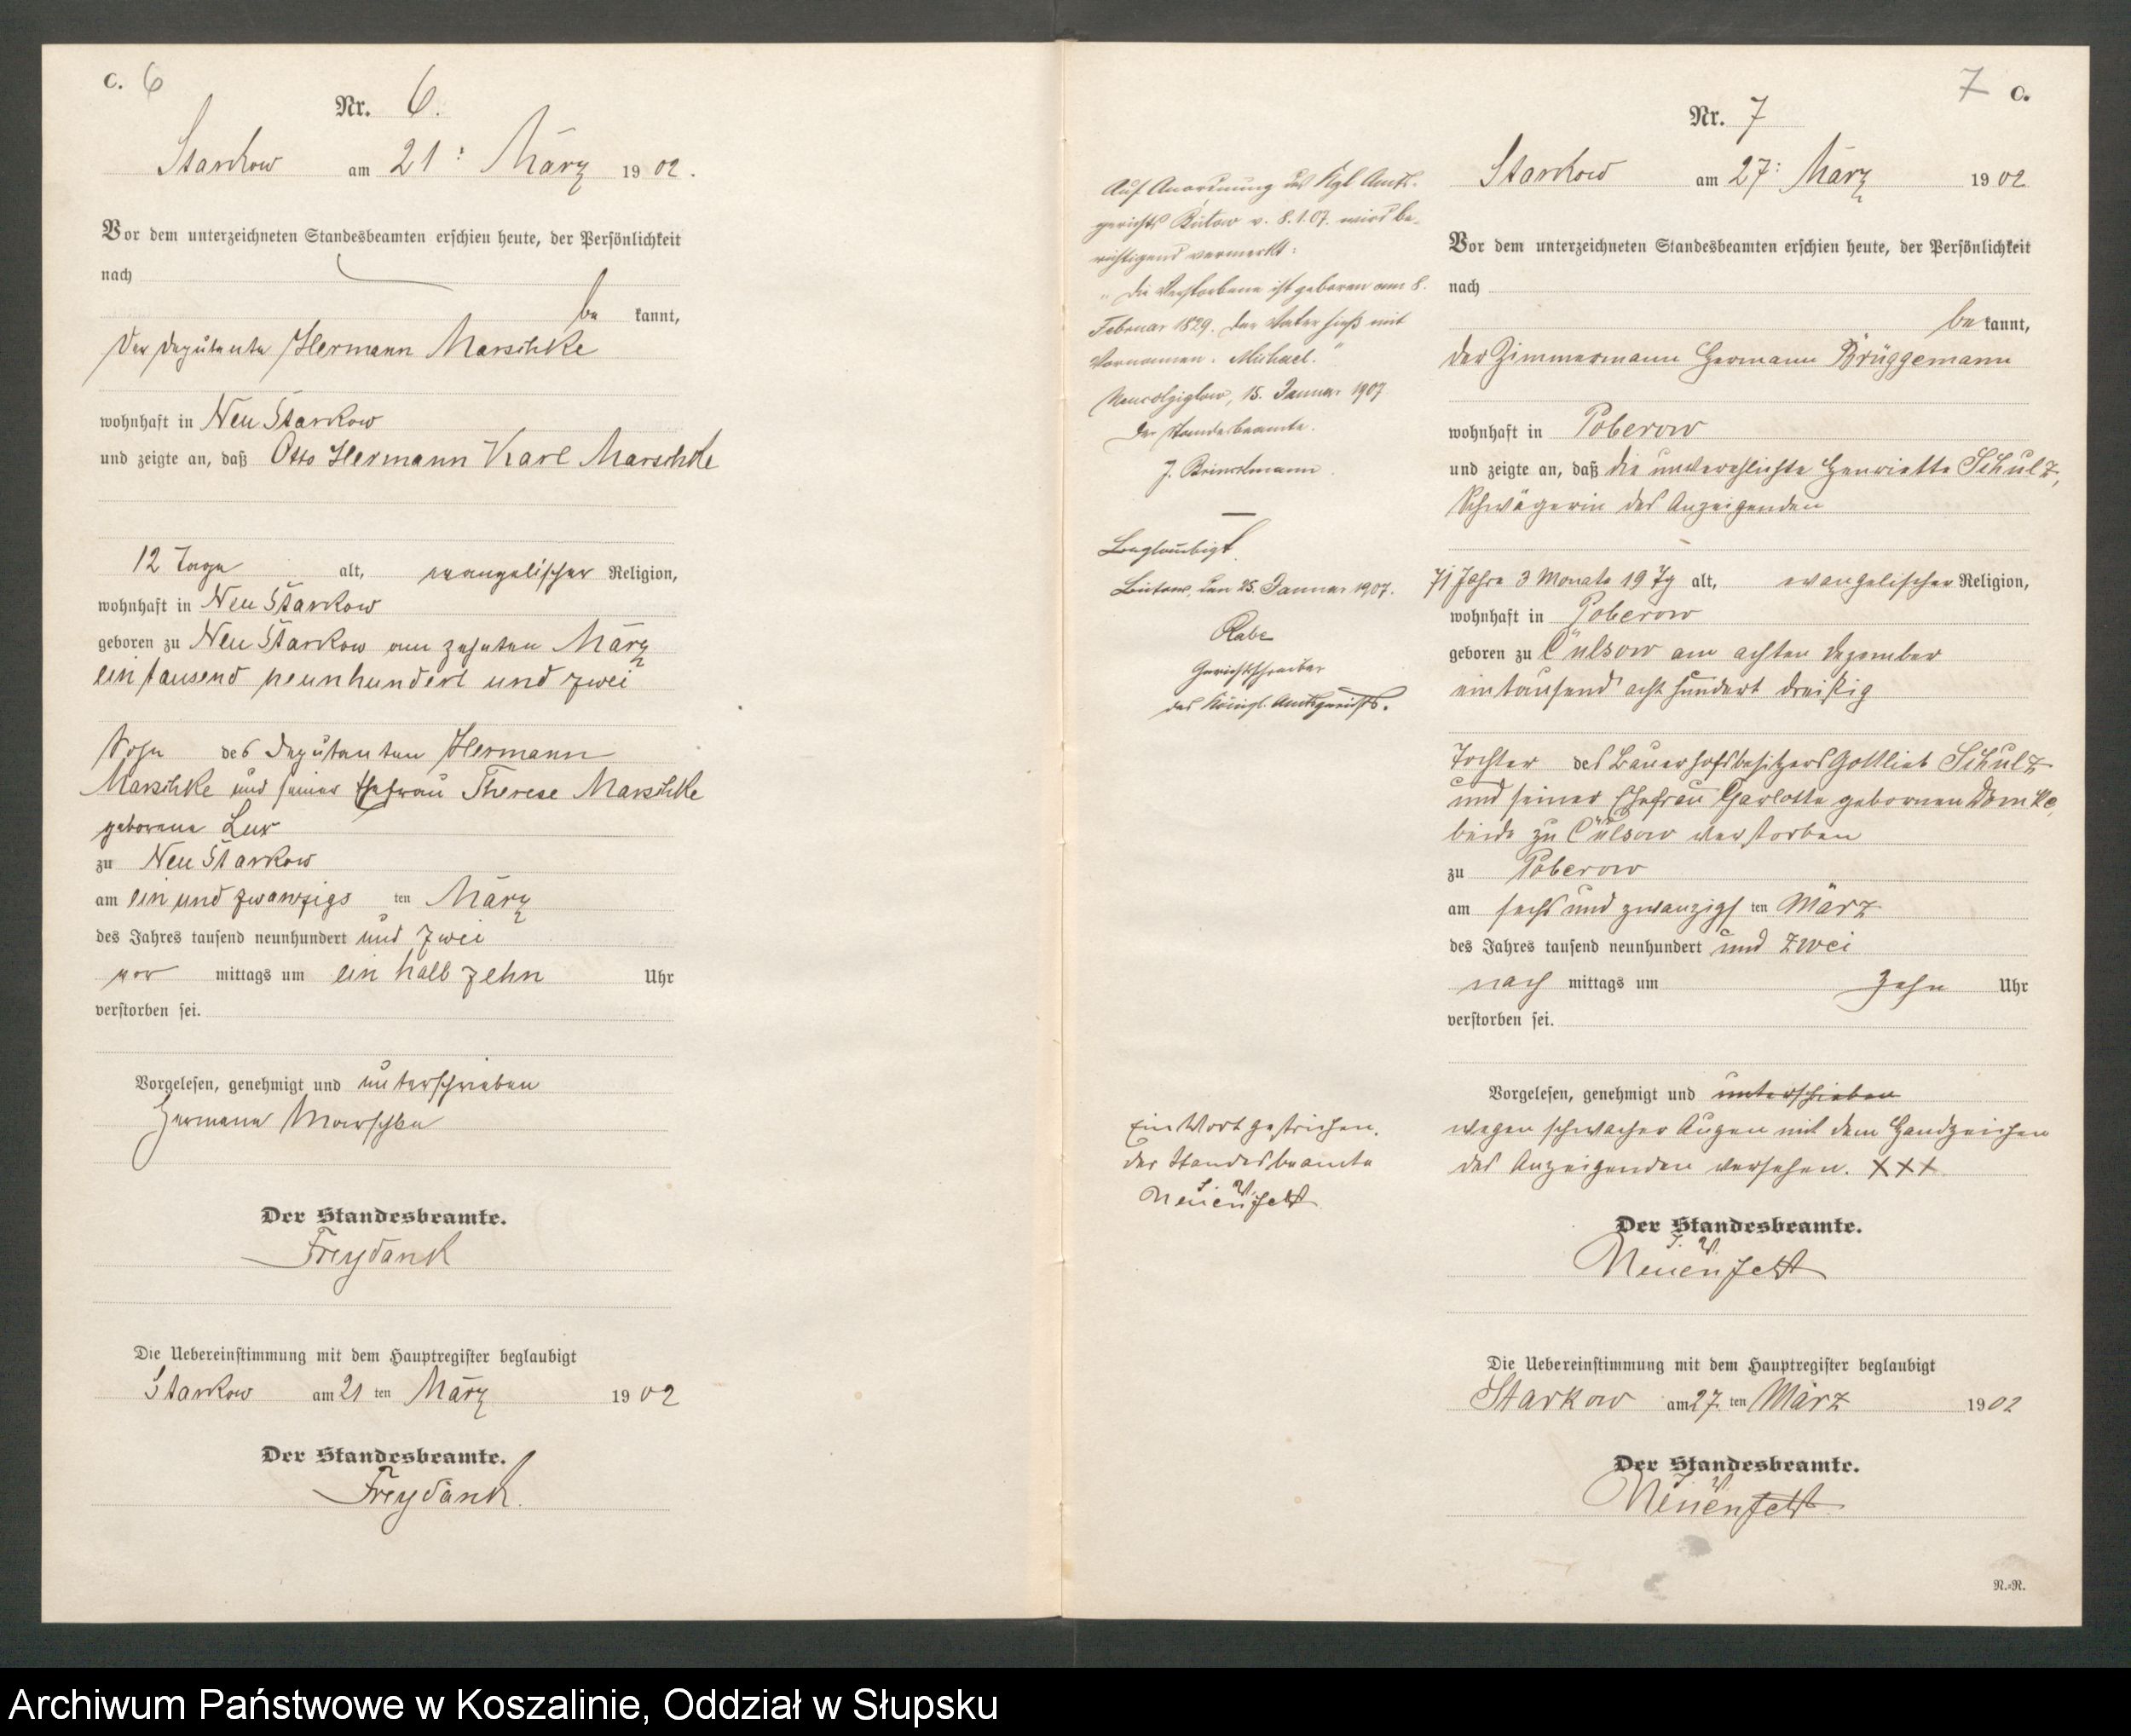 C. 6
Nr. 6.
Starkow am 21: März 1902.
Vor dem unterzeichneten Standesbeamten erschien heute, der Persönlichkeit
nach
be kannt,
Der Deputante Hermann Marschke
wohnhaft in Neu Starkow
und zeigte an, daß Otto Hermann Karl Marschke
12 Tage alt, evangelischer Religion,
wohnhaft in Neu Starkow
geboren zu Neu Starkow am zehnten März
ein tausend neunhundert und zwei
Sohn des Deputanten Hermann
Marschke und seiner Ehefrau Therese Marschke
geborene Lux
zu Neu Starkow
am ein und zwanzigs ten März
des Jahres tausend neunhundert und zwei
vor mittags um ein halb zehn Uhr
verstorben sei.
Vorgelesen, genehmigt und unterschrieben
Hermann Marschke
Der Standesbeamte.
Freydank
Die Uebereinstimmung mit dem Hauptregister beglaubigt
Starkow am 21 ten März 1902
Der Standesbeamte.
Freydank.
7 C.
Nr. 7
Starkow am 27: März 1902
Vor dem unterzeichneten Standesbeamten erschien heute, der Persönlichkeit
nach
be kannt,
der Zimmermann Hermann Brüggemann
wohnhaft in Poberow
und zeigte an, daß die unverehlichte Henriette Schulz,
Schwägerin des Anzeigenden
71 Jahre 3 Monate 19 Tg alt, evangelischer Religion,
wohnhaft in Poberow
geboren zu Cülsow am achten Dezember
eintausend acht hundert dreißig
Tochter des Bauerhofsbesitzers Gottlieb Schulz
und seiner Ehefrau Charlotte gebornen Domke,
beide zu Cülsow verstorben
zu Poberow
am sechs und zwanzigs ten März
des Jahres tausend neunhundert und zwei
nach mittags um zehn Uhr
verstorben sei.
Vorgelesen, genehmigt und unterschrieben
wegen schwacher Augen mit dem Handzeichen
des Anzeigenden versehen. XXX
Der Standesbeamte.
I. V.
Neuenfeldt
Die Uebereinstimmung mit dem Hauptregister beglaubigt
Starkow am 27. ten März 1902
Der Standesbeamte.
I. V.
Neuenfeldt
N.-R.
Auf Anordnung des Kgl Amts-
gerichts Bütow v. 8.1.07. wird be-
richtigend vermerkt:
"Die Verstorbene ist geboren am 8.
Februar 1829. Der Vater hieß mit
Vornamen: Michael."
15. Januar 1907
Der Standesbeamte.
J. Brinckmann.
Beglaubigt
Bütow, den 25. Januar 1907.
Rabe
Gerichtsschreiber
des Königl. Amtsgerichts.
Ein Wort gestrichen.
Der Standesbeamte
I. V.
Neuenfeldt
Archiwum Państwowe w Koszalinie, Oddział w Słupsku